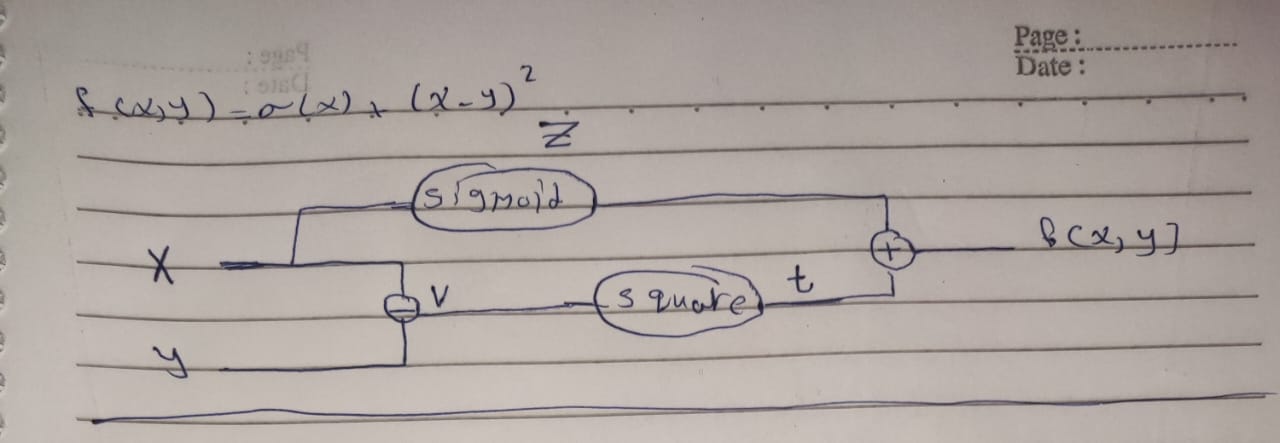 Page :
Date :
f(x,y) = σ(x) + (x-y)²
Z
sigmoid
X
f(x,y]
V
square
t
y